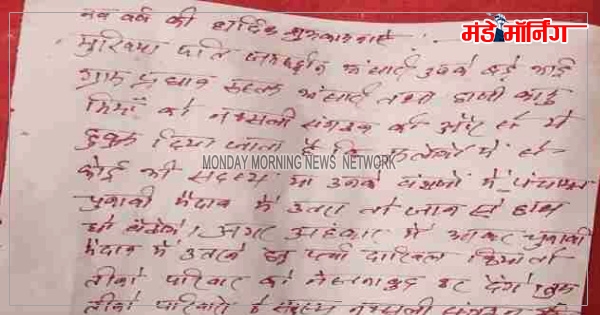 मंडे मॉर्निंग
नव वर्ष की हार्दिक शुभकामनाएं
मुखिया पति अंसारी उनके बड़े भाई
ग्राम प्रधान अंसारी तथा हाजी
मियाँ को नक्सली संगठन की ओर से ये
हुक्म दिया जाता है कि में से
MONDAY MORNING NEWS NETWORK
कोई भी सदस्य या उनके वंशजों में पंचायत
चुनावी मैदान में उतरा तो जान से हाथ
धो बैठेगा। अगर अहंकार में आकर चुनावी
मैदान में उतरने हेतु पर्चा दाखिल किया तो
तीनों परिवार को नेस्तनाबूद कर देंगे। तुम
तीनों परिवारों के सदस्य नक्सली संगठन के